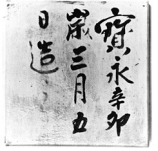 寶永辛卯
嵗三月五
日造